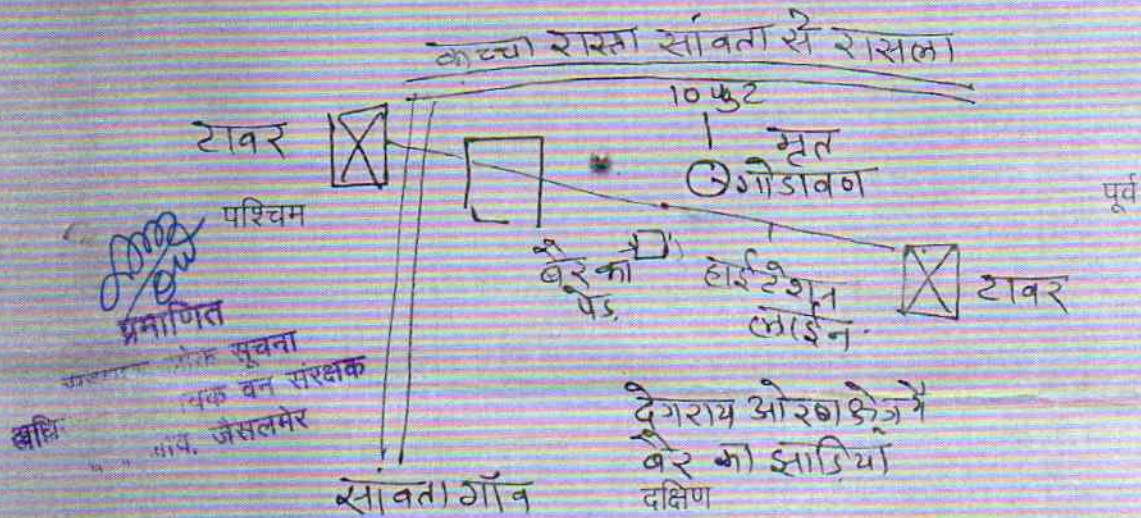 कच्चा रास्ता सांवता से रासला
10 फुट
टावर
मृत
गोडावण
पूर्व
पश्चिम
बेर का
पेड़
हाईटेंशन
लाईन.
टावर
प्रमाणित
लोक सूचना
वन संरक्षक
जैसलमेर
देगराय ओरण क्षेत्र मे
बेर की झाड़ियाँ
सांवता गाँव
दक्षिण